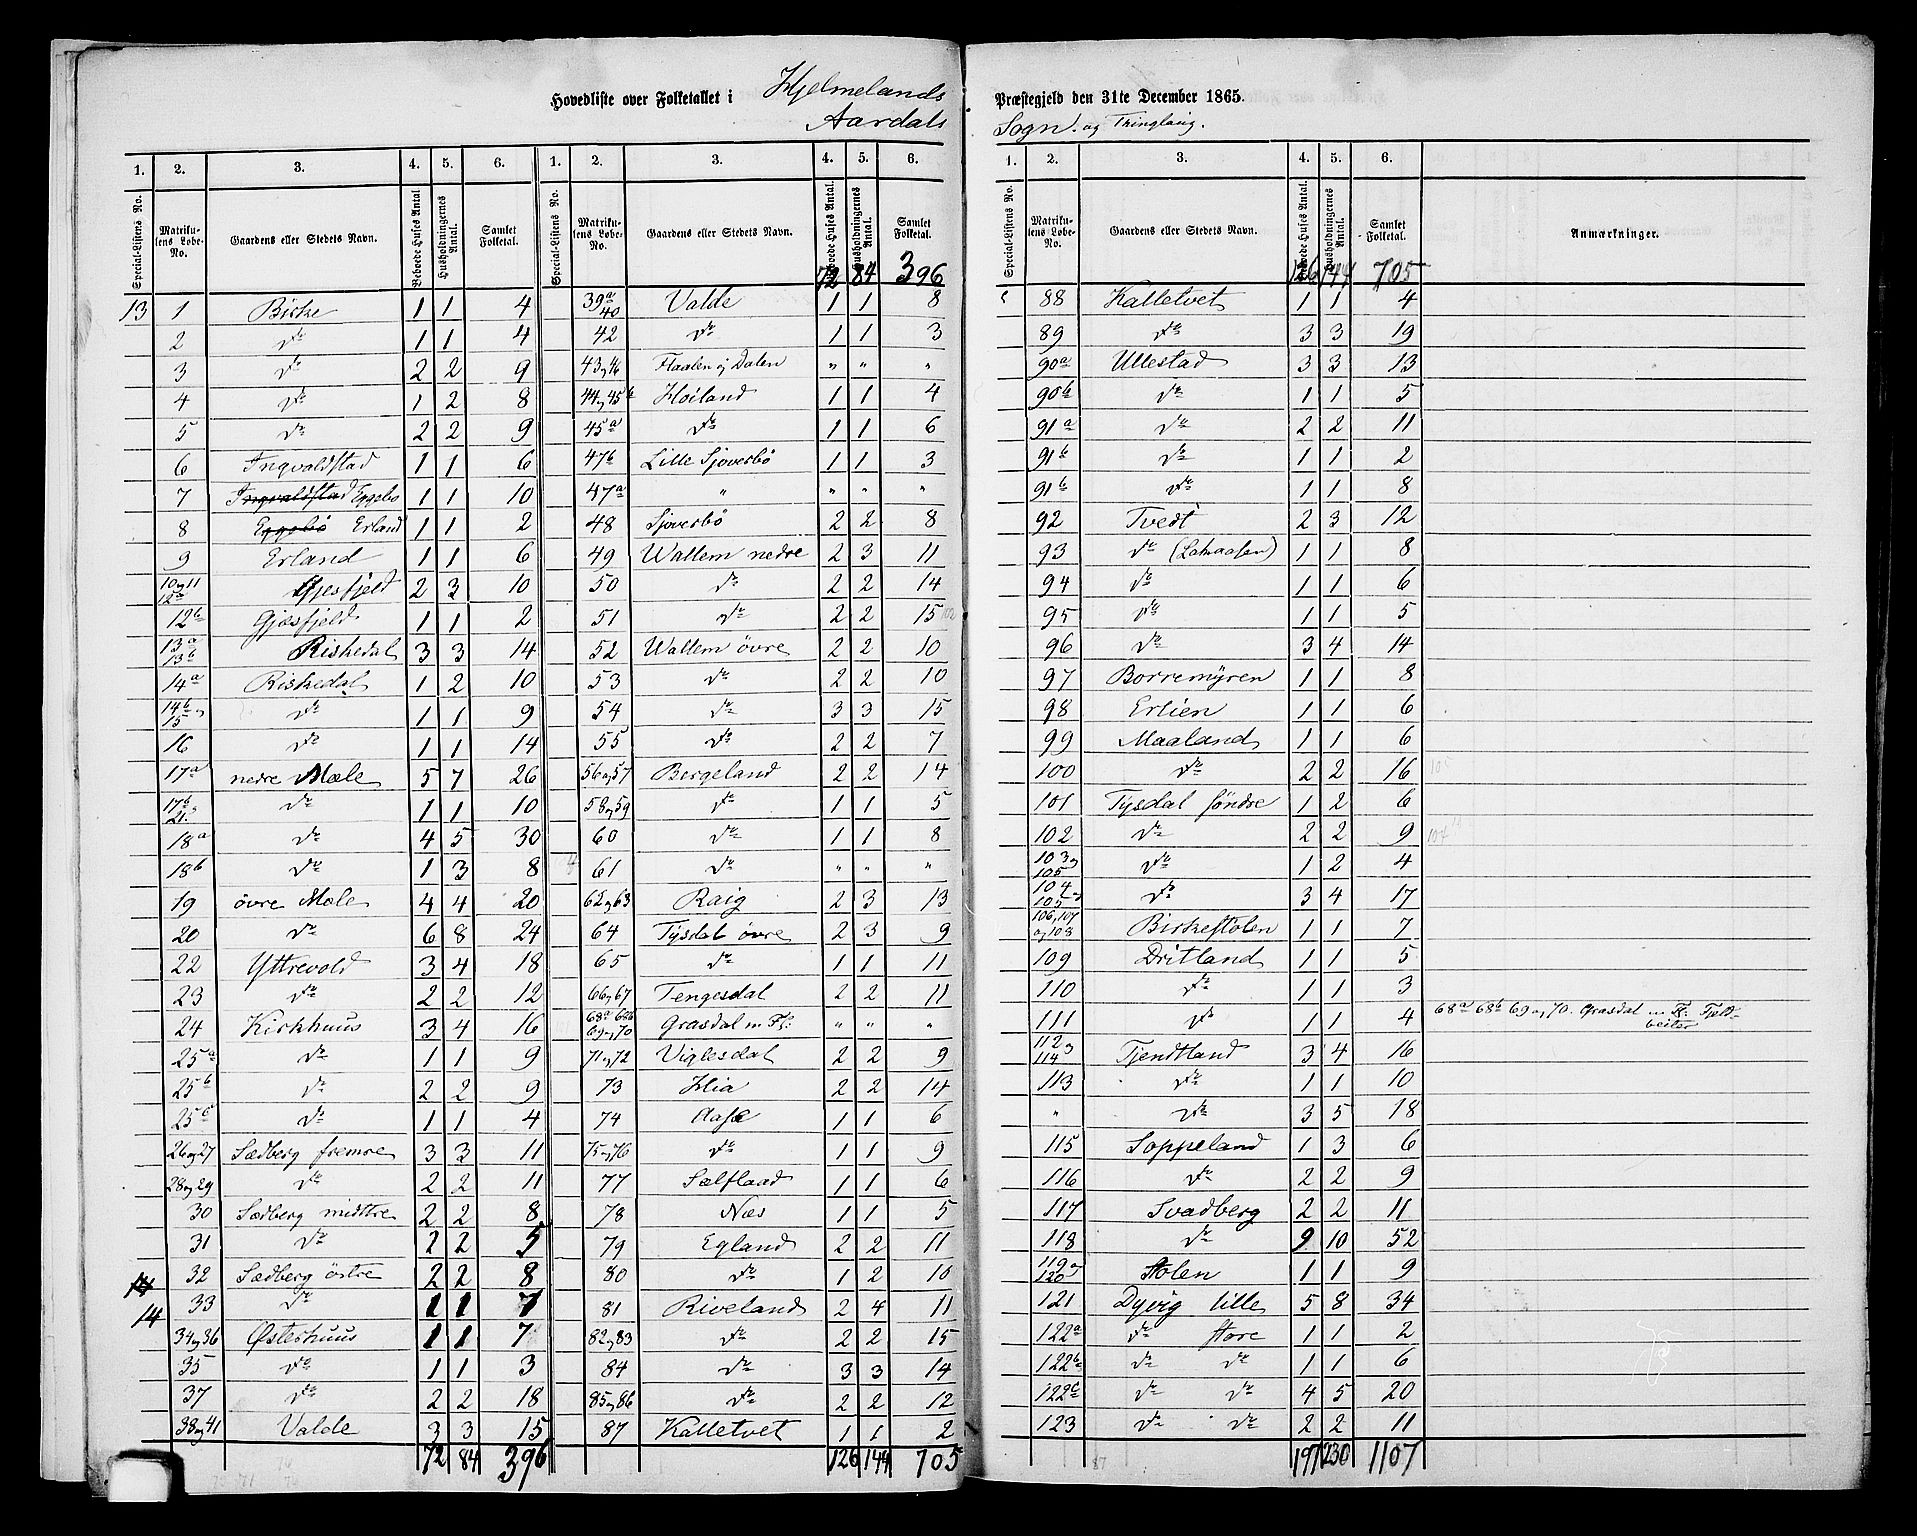 Hovedliste over Folketallet i Hjelmelands Præstegjeld den 31te December 1865.
Aardals Sogn. og Thinglaug.
1. 2. 3. 4. 5. 6. 1. 2. 3. 4. 5. 6.
Special-Listens No. Matrikulens Løbe-No. Gaardens eller Stedets Navn. Beboede Huses Antal. Husholdningernes Antal. Samlet Folketal. Special-Listens No. Matrikulens Løbe-No. Gaardens eller Stedets Navn. Beboede Huses Antal. Husholdningernes Antal. Samlet Folketal.
72 84 396
13 1 Birke 1 1 4 39a 40 Valde 1 1 8
2 do 1 1 4 42 do 1 1 3
3 do 2 2 9 43 og 46 Flaalen og Dalen " " "
4 do 1 2 8 44 og 45b Høiland 1 1 4
5 do 2 2 9 45a do 1 1 6
6 Ingvaldstad 1 1 6 47b Lille Sjovesbø 1 1 3
7 Ingvaldstad Eggebø 1 1 10 47a " " " "
8 Eggebø Erland 1 1 2 48 Sjovesbø 2 2 8
9 Erland 1 1 6 49 Wallem nedre 2 3 11
10 og 11 12a Gjesfjeld 2 3 10 50 do 2 2 14
12b Gjæsfjeld 1 1 2 51 do 2 2 15
13a 13b Riskedal 3 3 14 52 Wallem øvre 2 2 10
14a Riskedal 1 2 10 53 do 2 2 10
14b og 15 do 1 1 9 54 do 3 3 15
16 do 1 1 14 55 do 2 2 7
17a nedre Mæle 5 7 26 56 og 57 Bergeland 2 2 14
17b og 21 do 1 1 10 58 og 59 do 1 1 5
18a do 4 5 30 60 do 1 1 8
18b do 1 3 8 61 do " " "
19 øvre Mæle 4 4 20 62 og 63 Raig 2 3 13
20 do 6 8 24 64 Tysdal øvre 2 3 9
22 Yttrevold 3 4 18 65 do 1 1 11
23 do 2 2 12 66 og 67 Tengesdal 2 2 11
24 Kirkhuus 3 4 16 68a 68b 69 og 70 Grasdal m Fj: " " "
25a do 1 1 9 71 og 72 Viglesdal 2 2 9
25b do 2 2 9 73 Hia 2 2 14
25c do 1 1 4 74 Aase 1 1 6
26 og 27 Sædberg fremre 3 3 11 75 og 76 do 1 1 9
28 og 29 do 2 2 11 77 Sælflaad 1 1 6
30 Sædberg midttre 2 2 8 78 Næs 1 1 5
31 do 2 2 5 79 Egland 2 2 11
14 32 Sædberg østre 2 2 8 80 do 1 2 10
14 33 do 1 1 7 81 Riveland 2 4 11
34 og 36 Østerhuus 1 1 7 82 og 83 do 2 2 15
35 do 1 1 3 84 do 3 3 14
37 do 2 2 18 85 og 86 do 2 2 12
38 og 41 Valde 3 3 15 87 Kalletvet 1 1 2
72 84 396 126 144 705
1. 2. 3. 4. 5. 6.
Special-Listens No. Matrikulens Løbe-No. Gaardens eller Stedets Navn. Beboede Huses Antal. Husholdningernes Antal. Samlet Folketal. Anmærkninger.
126 144 705
88 Kalletvet 1 1 4
89 do 3 3 19
90a Ullestad 3 3 13
90b do 1 1 5
91a do 2 2 11
91b do 1 1 2
91b do 1 1 8
92 Tvedt 2 3 12
93 do (Lahaasen) 1 1 8
94 do 1 1 6
95 do 1 1 5
96 do 3 4 14
97 Borremyren 1 1 8
98 Erlien 1 1 6
99 Maaland 1 1 6
100 do 2 2 16
101 Tysdal søndre 1 2 6
102 do 2 2 9
103 og 105 do 1 2 4
104 og 105 do 3 4 17
106, 107 og 108 Birkestølen 1 1 7
109 Dritland 1 1 5
110 do 1 1 3
111 do 1 1 4 68a 68b 69 og 70. Grasdal m Fl. Fjeldbeiter
112 og 114 Tjendtland 3 4 16
113 do 1 1 10
" do 3 5 18
115 Soppeland 1 3 6
116 do 2 2 9
117 Svadberg 2 2 11
118 do 9 10 52
119 og 120 Stølen 1 1 9
121 Dyvig lille 5 8 34
122a do store 1 1 2
122b do do 1 1 6
122c do do 4 5 20
123 do do 2 2 11
197 230 1107